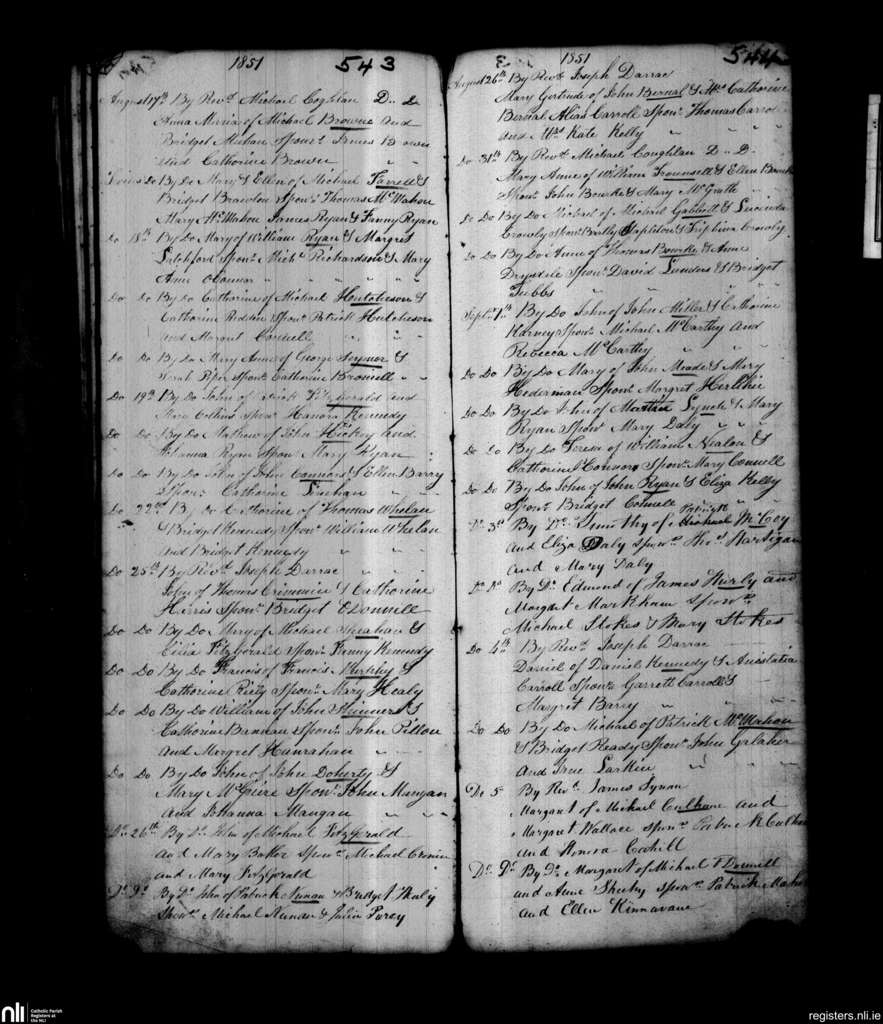 1851 543
August 17th By Revd. Michael Coghlan D. D
Anna Maria of Michael Browne and
Bridget Meehan Sponr. James Browne
and Catherine Brown
Twins Do By Do Mary & Ellen of Michael Farrell &
Bridget Sponr. Thomas McMahon
Mary McMahon James Ryan & Fanny Ryan
Do 18th By Do Mary of William Ryan & Margret
Sponr. Michl. Richardson & Mary
Ann OConnor
Do Do By Do Catherine of Michael Hutcheson &
Catherine Sponr. Patrick Hutcheson
and Margret Connell
Do Do By Do Mary Anne of George Seymor &
Sarah Piper Sponr. Catherine
Do 19th By Do John of FitzGerald and
Collins Sponr. Hanora Kennedy
Do Do By Do Mathew of John Hickey and
Johanna Ryan Sponr. Mary Ryan
Do Do By Do John of John Connors & Ellen Barry
Sponr. Catherine Linehan
Do 22nd By Do Catherine of Thomas Whelan
& Bridget Kennedy Sponr. William Whelan
and Bridget Kennedy
Do 25th By Revd. Joseph Darrac
John of Thomas Crimmin & Catherine
Harris Sponr. Bridget ODonnell
Do Do By Do Mary of Michael Sheahan &
Celia FitzGerald Sponr. Fanny Kennedy
Do Do By Do Francis of Francis Murphy &
Catherine Sponr. Mary Healy
Do Do By Do William of John Skinner &
Catherine Brennan Sponr. John Pillon
and Margret Hanrahan
Do Do By Do John of John Doherty &
Mary McGuire Sponr. John Mangan
and Johanna Mangan
Do. 26th By Do. John of Michael FitzGerald
and Mary Baker Sponr. Michael Cronin
and Mary FitzGerald
Do. Do. By Do. John of Patrick Nunan & Bridget Healy
Sponr. Michael Nunan & Julia Purcy
1851 544
August 26th By Revd. Joseph Darrac
Mary Gertrude of John Bernal & Mrs Catherine
Bernal Alias Carroll Sponr. Thomas Carroll
and Mrs Kate Kelly
Do 31st By Revd. Michael Coughlan D. D.
Mary Anne of William Trounsell & Ellen Bourke
Sponr. John Bourke & Mary McGrath
Do Do By Do Michael of Michael Gabbett & Lucinda
Crowly Sponr. Stapleton & Crowly
Do Do By Do Anne of Thomas Bourke & Anne
Drysdale Sponr. David Sunders & Bridget
Tubbs
Septr. 1st By Do John of John Miller & Catherine
Karney Sponr. Michael McCarthy and
Rebecca McCarthy
Do Do By Do Mary of John Meade & Mary
Hederman Sponr. Margret Herlihie
Do Do By Do John of Martin Lynch & Mary
Ryan Sponr Mary Daly
Do Do By Do Teresa of William Nealon &
Catherine Connors Sponr. Mary Connell
Do Do By Do John of John Ryan & Eliza Kelly
Sponr. Bridget Connell
Patrick
Do. 3rd By Do. Timothy of Michael McCoy
and Eliza Daly Sponr. Thos. Hartigan
and Mary Daly
Do. Do. By Do. Edmond of James Hurly and
Margaret Markham Sponr.
Michael Stokes & Mary Stokes
Do 4th By Revd. Joseph Darrac
Daniel of Daniel Kennedy & Anistatia
Carroll Sponr. Garrett Carroll &
Margret Barry
Do Do By Do Michael of Patrick McMahon
& Bridget Ready Sponr. John Galaher
and Jane Larkin
Do 5 By Revd. James Synan
Margaret of Michael Culhane and
Margaret Wallace sponr. Patrick Culhane
and Honora Cahill
Do. Do. By Do. Margaret of Michael ODonnell
and Anne Sheehy sponr. Patrick
and Ellen Kinnavane
nli Catholic Parish
Registers at
the NLI
registers.nli.ie